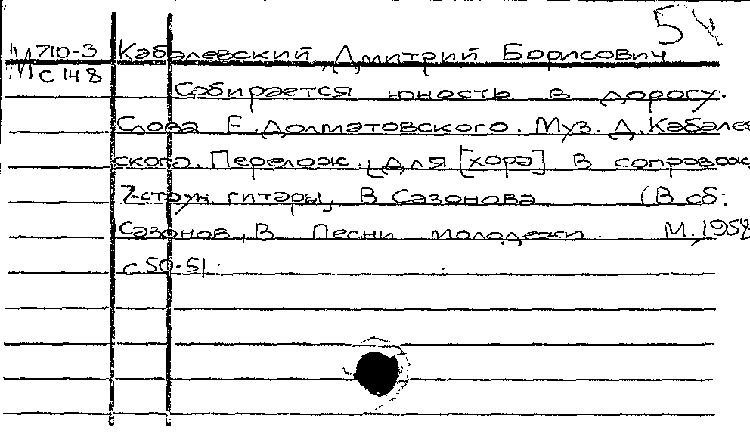 54
М 710-3 Кабалевский, Дмитрий Борисович
М С 148
Собирается юность в дорогу.
Слова Е. Долматовского. Муз. Д. Кабалев
ского. Перелож. для [хора] в сопровож
7-струн. гитары, В Сазонова (В сб:
Сазонов, В Песни молодежи. М., 1958
с. 50-51.